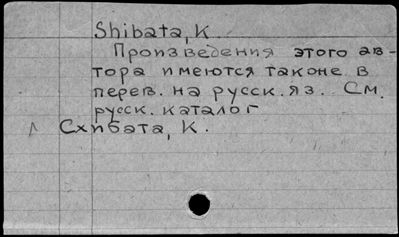 Shibata, K.
Произведения этого ав-
тора имеются таконе в
перев. на русск. яз. См.
русск. каталог
Схибата, К.